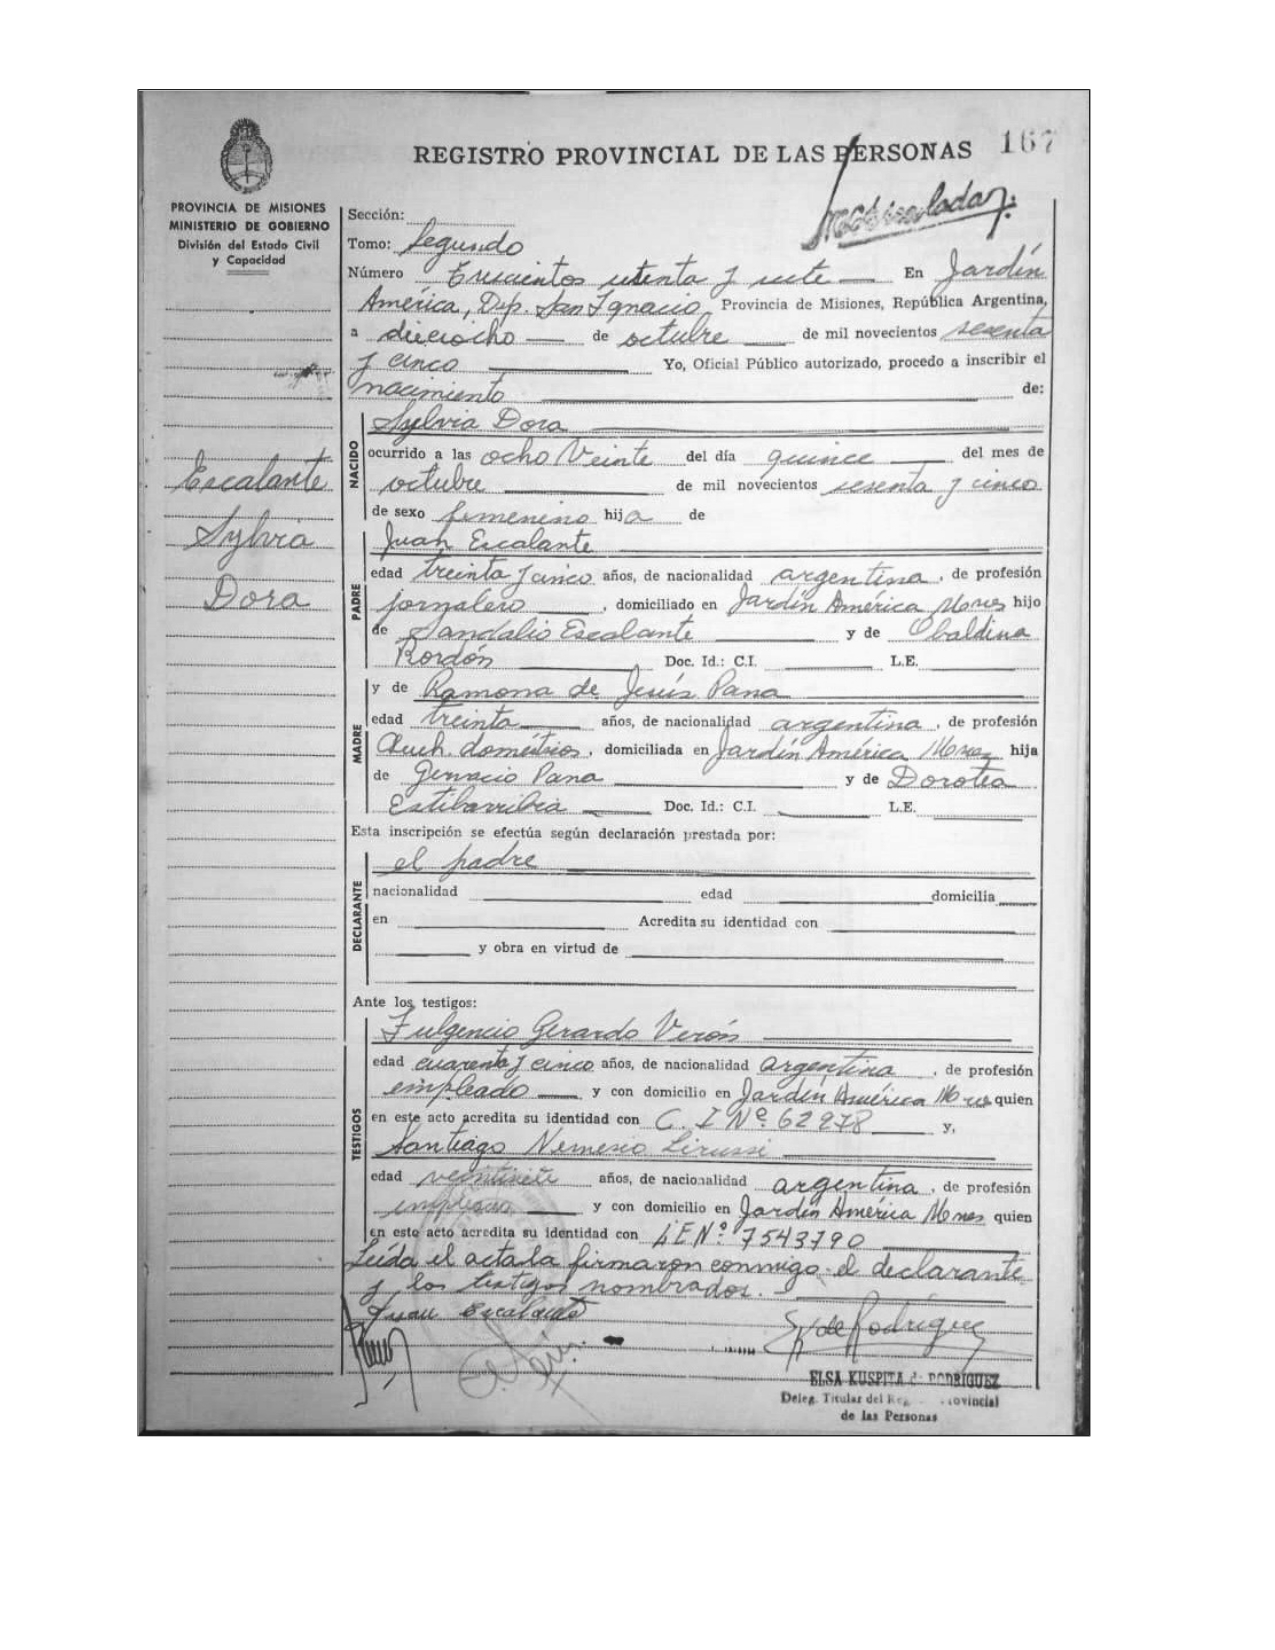 REGISTRO PROVINCIAL DE LAS PERSONAS
167
Matriculada
PROVINCIA DE MISIONES
MINISTERIO DE GOBIERNO
División del Estado Civil
y Capacidad
Escalante
Sylvia
Dora
Sección:
Tomo: Segundo
Número Trescientos setenta y siete En Jardín
América, Dep. San Ignacio Provincia de Misiones, República Argentina,
a dieciocho de octubre de mil novecientos sesenta
y cinco Yo, Oficial Público autorizado, procedo a inscribir el
nacimiento de:
NACIDO
Sylvia Dora
ocurrido a las ocho Veinte del día quince del mes de
octubre de mil novecientos sesenta y cinco
de sexo femenino hija de
PADRE
Juan Escalante
edad treinta y cinco años, de nacionalidad argentina, de profesión
jornalero, domiciliado en Jardín América Mones hijo
de Sandalio Escalante y de Obaldina
Rordón Doc. Id.: C.I. L.E.
MADRE
y de Ramona de Jesús Pana
edad treinta años, de nacionalidad argentina, de profesión
Queh. domésticos, domiciliada en Jardín América Mones hija
de Gervacio Pana y de Dorotea
Estibarribia Doc. Id.: C.I. L.E.
Esta inscripción se efectúa según declaración prestada por:
DECLARANTE
el padre
nacionalidad edad domicilia
en Acredita su identidad con
y obra en virtud de
Ante los testigos:
TESTIGOS
Fulgencio Gerardo Verón
edad cuarenta y cinco años, de nacionalidad argentina, de profesión
empleado y con domicilio en Jardín América Mones quien
en este acto acredita su identidad con C. I Nº 62978 y,
Santiago Nemesio Lirussi
edad años, de nacionalidad argentina, de profesión
empleado y con domicilio en Jardín América Mones quien
en este acto acredita su identidad con L E Nº 7543790
Leída el acta la firmaron conmigo el declarante
y los testigos nombrados.
Juan Escalante
de Rodríguez
ELSA KUSPITA d RODRIGUEZ
Deleg. Titular del Reg. Provincial
de las Personas